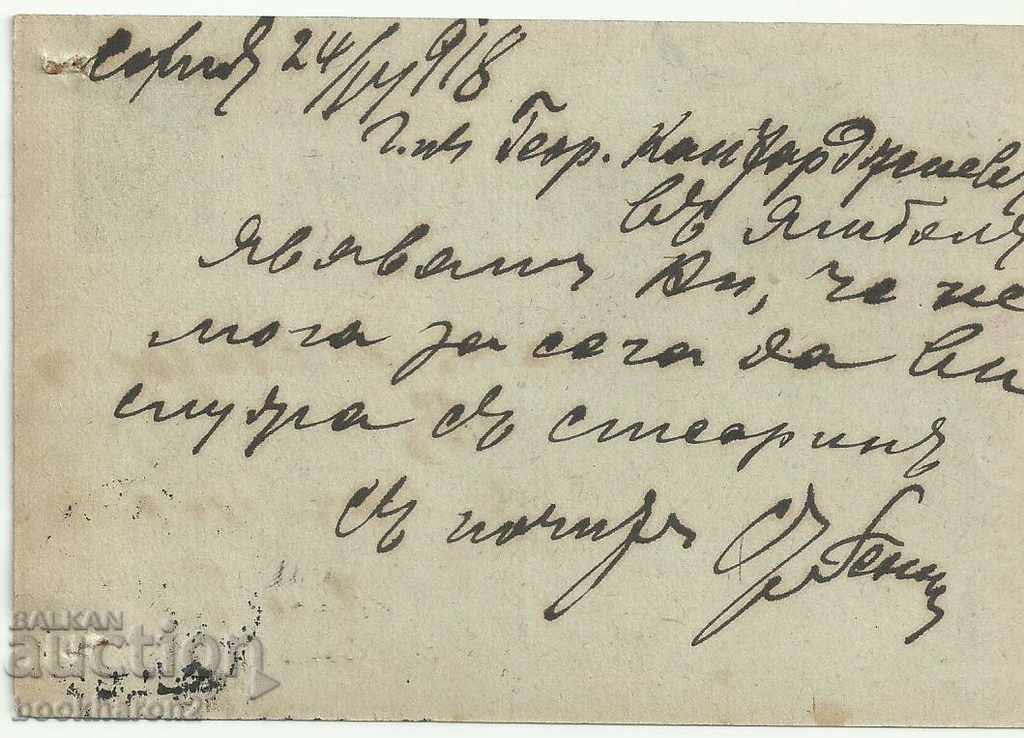 София 24/IV 918
Г-нъ Геор. Кантарджиевъ
въ Ямболъ
Явявамъ Ви, че не
мога за сега да Ви
служа съ стеаринъ
съ почит
BALKAN
auction
bookharon2